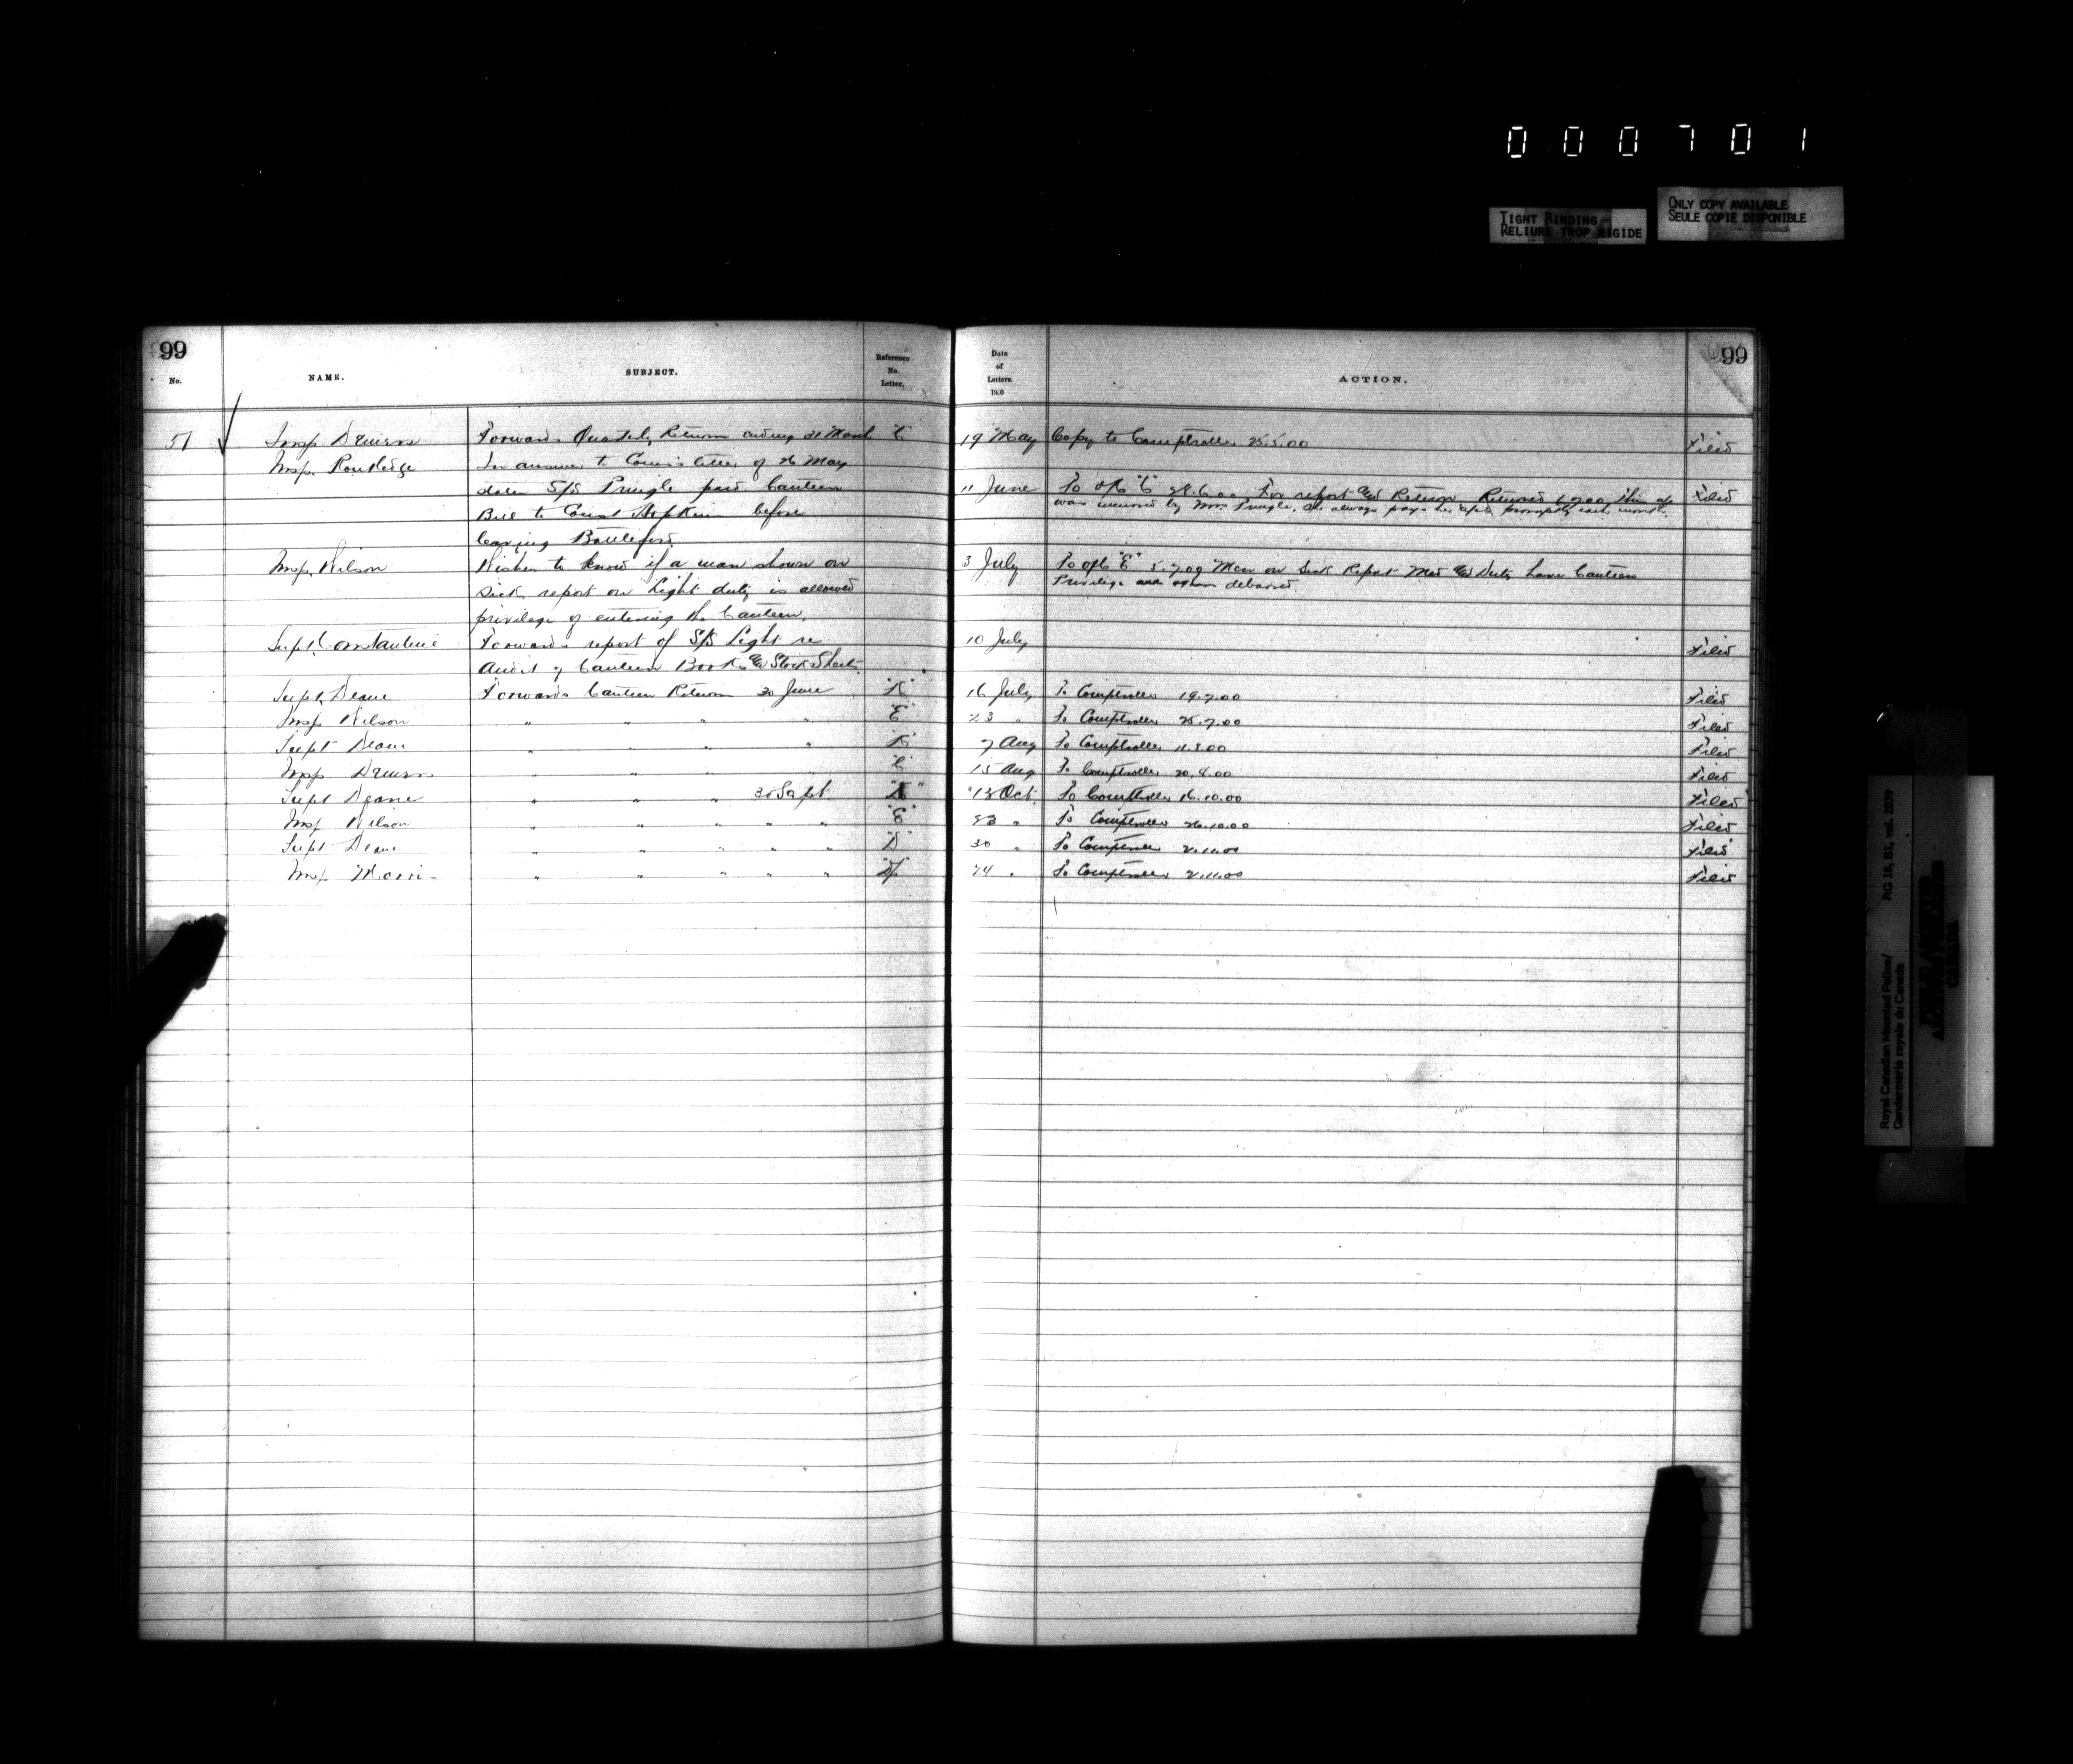 000701
TIGHT BINDING
RELIURE TROP RIGIDE
ONLY COPY AVAILABLE
SEULE COPIE DISPONIBLE
99
No.
NAME.
SUBJECT.
Reference
No.
Letter.
Date
of
Letters.
190
ACTION.
99
51 Insp Forwards Quarterly Return ending 31 March "C" 19 May Copy to Comptroller 25.5.00 Filed
Insp. Routledge In answer to letter of 26 May
states S/S Pringle paid Canteen 11 June To "C" 28.6.00 For report & Return Returned 6.7.00 This Filed
Bill to Const before was incurred by Mrs. Pringle, she always pays her promptly each month.
leaving Battleford
Insp. Wilson Wishes to know if a man shown on 3 July To "E" 5.7.00 Men on Sick Report Med & Duty have Canteen
sick report on light duty is allowed Privilege debarred
privilege of entering the Canteen.
Supt. Constantine Forwards report of S/S Light re 10 July Filed
Audit of Canteen Books & Stock Sheets
Supt. Deane Forwards Canteen Return 30 June 16 July To Comptroller 19.7.00 Filed
Insp Wilson " " " " "E" 23 " To Comptroller 25.7.00 Filed
Supt Deane " " " " 7 Aug To Comptroller 11.8.00 Filed
Insp " " " " "C" 15 Aug To Comptroller 20.8.00 Filed
Supt Deane " " " 30 Sept 13 Oct To Comptroller 16.10.00 Filed
Insp Wilson " " " " " "E" 23 " To Comptroller 26.10.00 Filed
Supt Deane " " " " " "D" 30 " To Comptroller 2.11.00 Filed
Insp " " " " " 24 " To Comptroller 2.11.00 Filed
Royal Canadian Mounted Police/
Gendarmerie royale du Canada
RG 18, B1, vol. 2039
PUBLIC ARCHIVES
ARCHIVES PUBLIQUES
CANADA